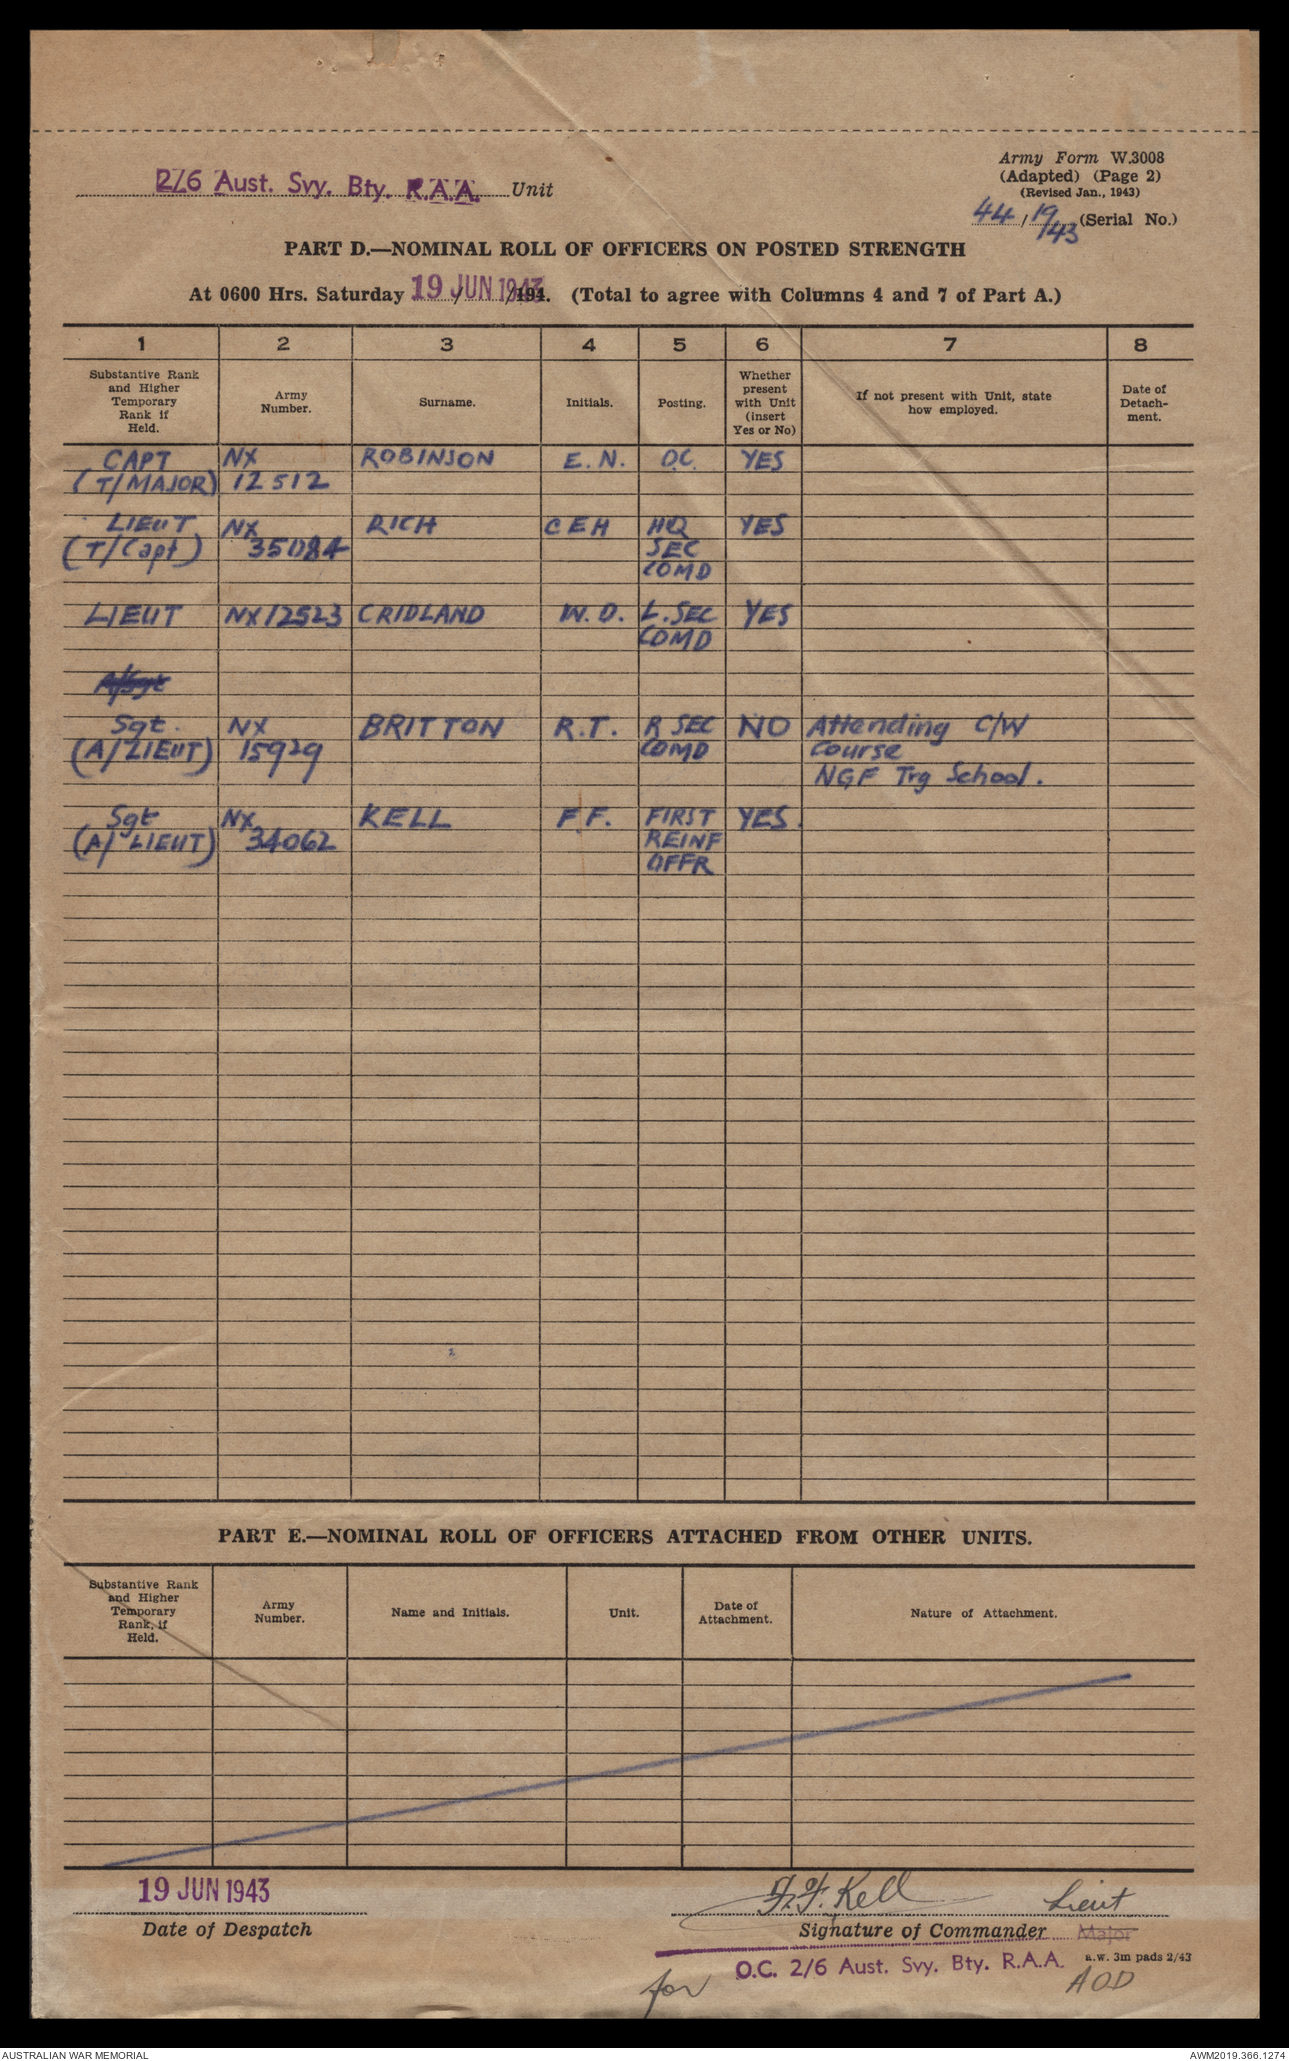 Army Form W.3008
(Adapted) (Page 2)
(Revised Jan., 1943)
2/6 Aust. Svy. Bty. R.A.A. Unit
44/19/43 (Serial No.)
PART D.—NOMINAL ROLL OF OFFICERS ON POSTED STRENGTH
At 0600 Hrs. Saturday 19 JUN 1943 /194. (Total to agree with Columns 4 and 7 of Part A.)
1 2 3 4 5 6 7 8
Substantive Rank and Higher Temporary Rank if Held.
Army Number.
Surname.
Initials.
Posting.
Whether present with Unit (insert Yes or No)
If not present with Unit, state how employed.
Date of Detachment.
CAPT NX ROBINSON E. N. O.C. YES
(T/MAJOR) 12512
LIEUT NX RICH C E H HQ YES
(T/Capt) 35084 SEC
COMD
LIEUT NX12523 CRIDLAND W. D. L. SEC YES
COMD
A/Sgt
Sgt. NX BRITTON R.T. R SEC NO Attending C/W
(A/LIEUT) 15929 COMD Course
NGF Trg School.
Sgt NX KELL F.F. FIRST YES.
(A/ LIEUT) 34062 REINF
OFFR
PART E.—NOMINAL ROLL OF OFFICERS ATTACHED FROM OTHER UNITS.
Substantive Rank and Higher Temporary Rank, if Held.
Army Number.
Name and Initials.
Unit.
Date of Attachment.
Nature of Attachment.
19 JUN 1943 F.F. Kell Lieut
Date of Despatch Signature of Commander Major
a.w. 3m pads 2/43
O.C. 2/6 Aust. Svy. Bty. R.A.A.
for AOD
AUSTRALIAN WAR MEMORIAL AWM2019.366.1274